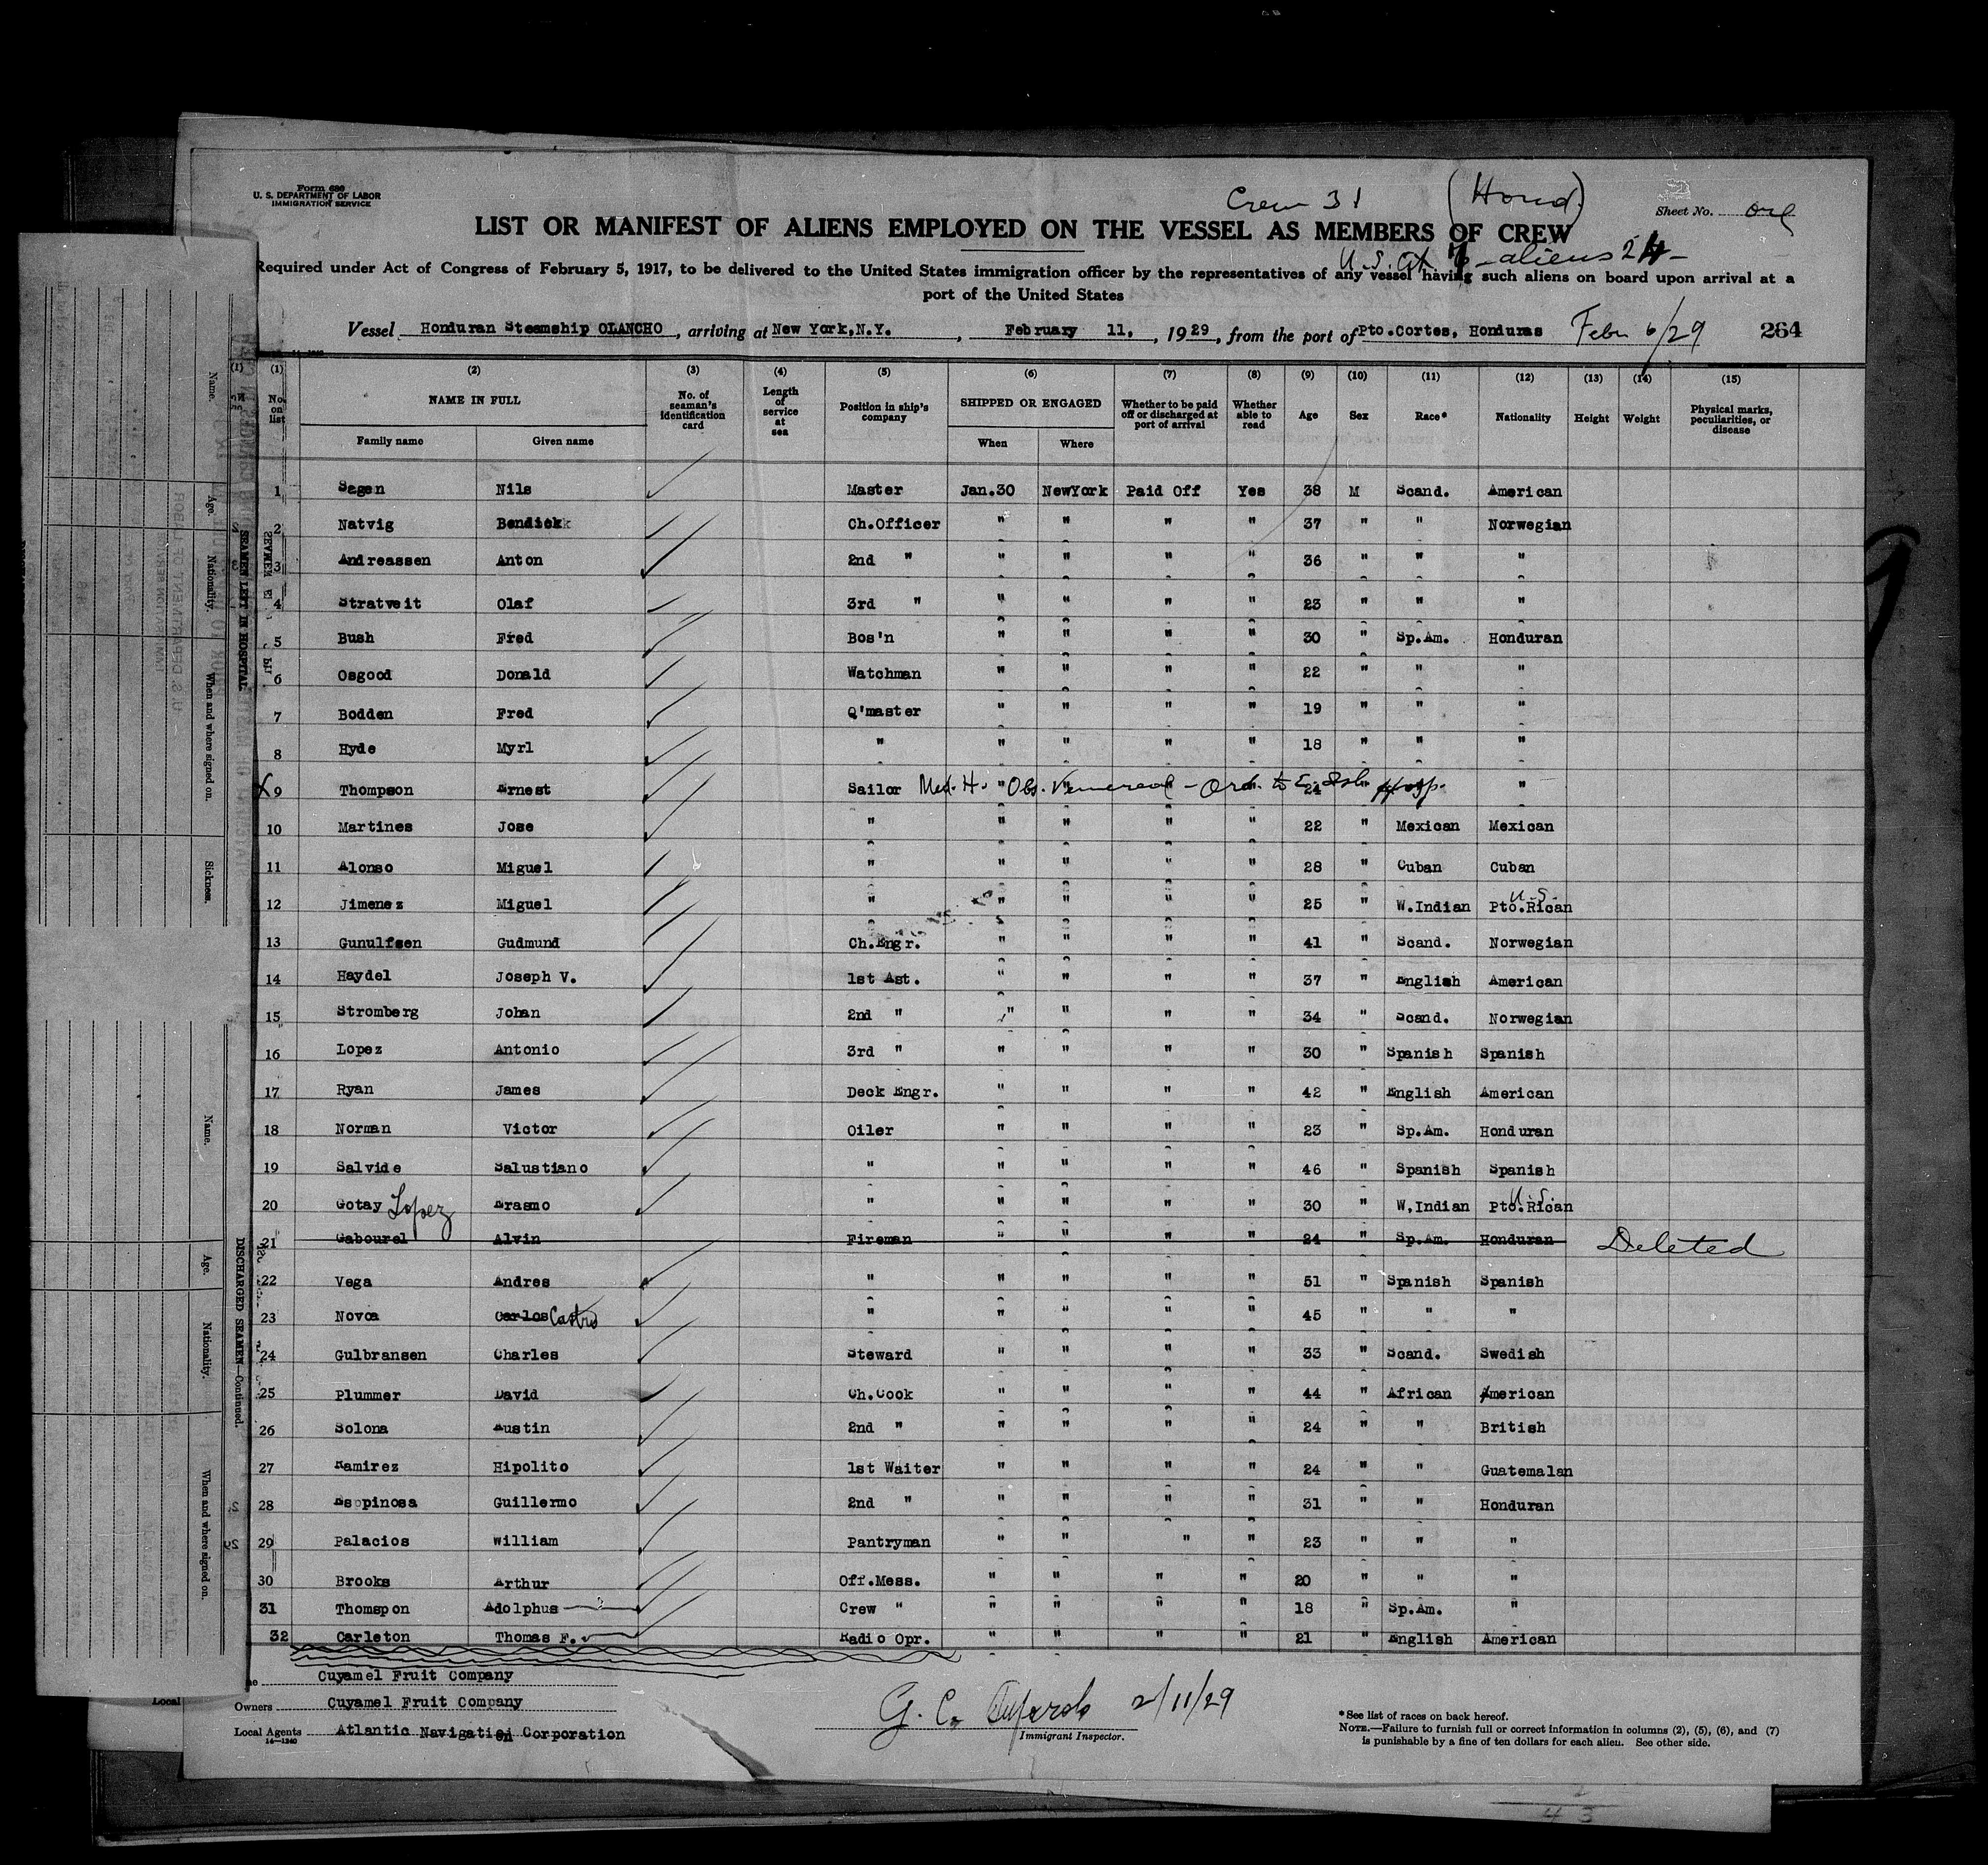 Form 680
U. S. DEPARTMENT OF LABOR
IMMIGRATION SERVICE
Crew 31 (Hond)
Sheet No. one
LIST OR MANIFEST OF ALIENS EMPLOYED ON THE VESSEL AS MEMBERS OF CREW
U.S. Cit 7 - aliens 24 -
Required under Act of Congress of February 5, 1917, to be delivered to the United States immigration officer by the representatives of any vessel having such aliens on board upon arrival at a
port of the United States
Vessel Honduran Steamship OLANCHO, arriving at New York, N.Y., February 11, 1929, from the port of Pto.Cortes, Honduras Febr 6/29 264
(1) (2) (3) (4) (5) (6) (7) (8) (9) (10) (11) (12) (13) (14) (15)
No. on list NAME IN FULL No. of seaman's identification card Length of service at sea Position in ship's company SHIPPED OR ENGAGED Whether to be paid off or discharged at port of arrival Whether able to read Age Sex Race* Nationality Height Weight Physical marks, peculiarities, or disease
Family name Given name When Where
1 Sagen Nils Master Jan.30 NewYork Paid Off Yes 38 M Scand. American
2 Natvig Bendick Ch.Officer " " " " 37 " " Norwegian
3 Andreassen Anton 2nd " " " " " 36 " " "
4 Stratveit Olaf 3rd " " " " " 23 " " "
5 Bush Fred Bos'n " " " " 30 " Sp.Am. Honduran
6 Osgood Donald Watchman " " " " 22 " " "
7 Bodden Fred Q'master " " " " 19 " " "
8 Hyde Myrl " " " " " 18 " " "
X 9 Thompson Ernest Sailor Med. H. Obs. Venereal - Ord. to E. Isl. Hosp. 24 "
10 Martines Jose " " " " " 22 " Mexican Mexican
11 Alonso Miguel " " " " " 28 " Cuban Cuban
12 Jimenez Miguel " " " " " 25 " W.Indian Pto.Rican U.S.
13 Gunulfsen Gudmund Ch.Engr. " " " " 41 " Scand. Norwegian
14 Haydel Joseph V. 1st Ast. " " " " 37 " English American
15 Stromberg Johan 2nd " " " " " 34 " Scand. Norwegian
16 Lopez Antonio 3rd " " " " " 30 " Spanish Spanish
17 Ryan James Deck Engr. " " " " 42 " English American
18 Norman Victor Oiler " " " " 23 " Sp.Am. Honduran
19 Salvide Salustiano " " " " " 46 " Spanish Spanish
20 Gotay Lopez Erasmo " " " " " 30 " W.Indian Pto.Rican U.S.
21 Gabourel Alvin Fireman " " " " 24 " Sp.Am. Honduran Deleted
22 Vega Andres " " " " " 51 " Spanish Spanish
23 Novoa Carlos Castro " " " " " 45 " " "
24 Gulbransen Charles Steward " " " " 33 " Scand. Swedish
25 Plummer David Ch.Cook " " " " 44 " African American
26 Solona Austin 2nd " " " " " 24 " " British
27 Ramirez Hipolito 1st Waiter " " " " 24 " " Guatemalan
28 Espinosa Guillermo 2nd " " " " " 31 " " Honduran
29 Palacios William Pantryman " " " " 23 " " "
30 Brooks Arthur Off.Mess. " " " " 20 " " "
31 Thomspon Adolphus Crew " " " " " 18 " Sp.Am. "
32 Carleton Thomas F. Radio Opr. " " " " 21 " English American
Cuyamel Fruit Company
Owners Cuyamel Fruit Company
Local Agents Atlantic Navigation Corporation
14-1240
G. C. 2/11/29
Immigrant Inspector.
*See list of races on back hereof.
NOTE.—Failure to furnish full or correct information in columns (2), (5), (6), and (7)
is punishable by a fine of ten dollars for each alien. See other side.
Name. Age. Nationality. When and where signed on. Sickness.
SEAMEN LEFT IN HOSPITAL
Name. Age. Nationality. When and where signed on.
DISCHARGED SEAMEN—Continued.
Local
43